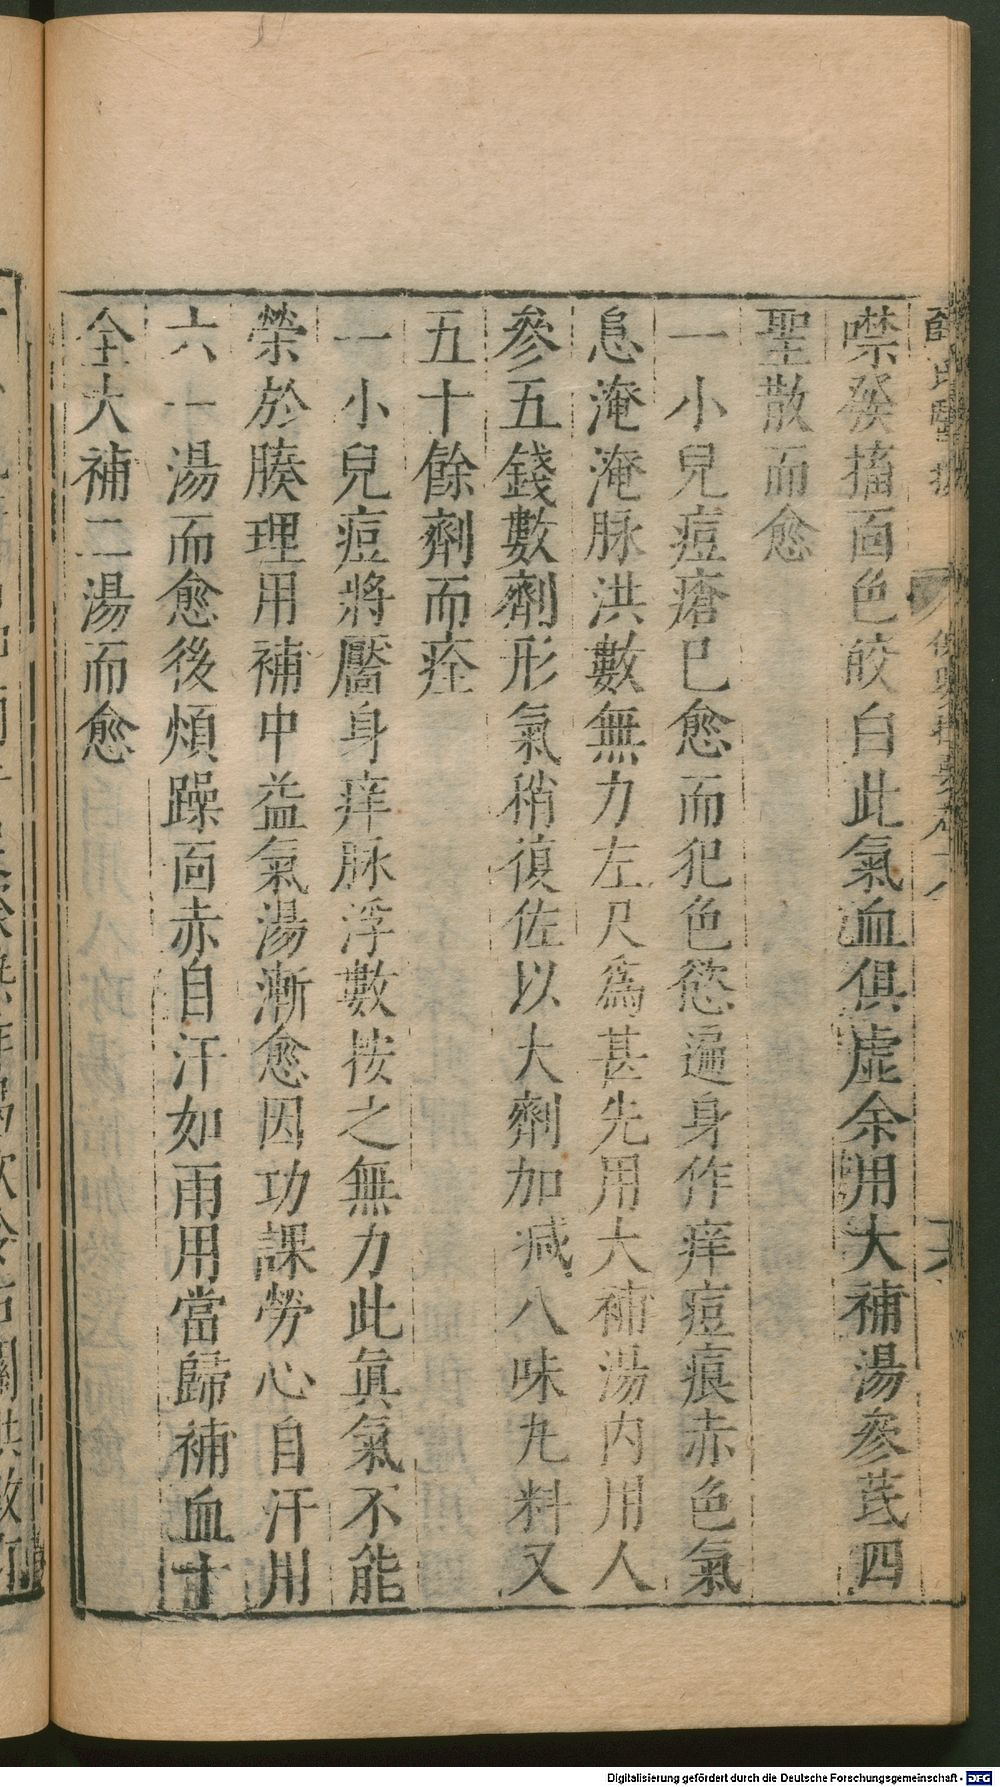 噤發搐面色皎白此氣血俱虚余用大補湯參芪四
聖散而愈
一小兒痘瘡已愈而犯色慾遍身作痒痘痕赤色氣
息淹淹脉洪數無力左尺爲甚先用大補湯内用人
參五錢數劑形氣稍復佐以大劑加减八味丸料又
五十餘劑而痊
一小兒痘將靨身痒脉浮數按之無力此眞氣不能
榮於腠理用補中益氣湯漸愈因功課勞心自汗用
六一湯而愈後煩躁面赤自汗如雨用當歸補血十
全大補二湯而愈
Digitalisierung gefördert durch die Deutsche Forschungsgemeinschaft - DFG